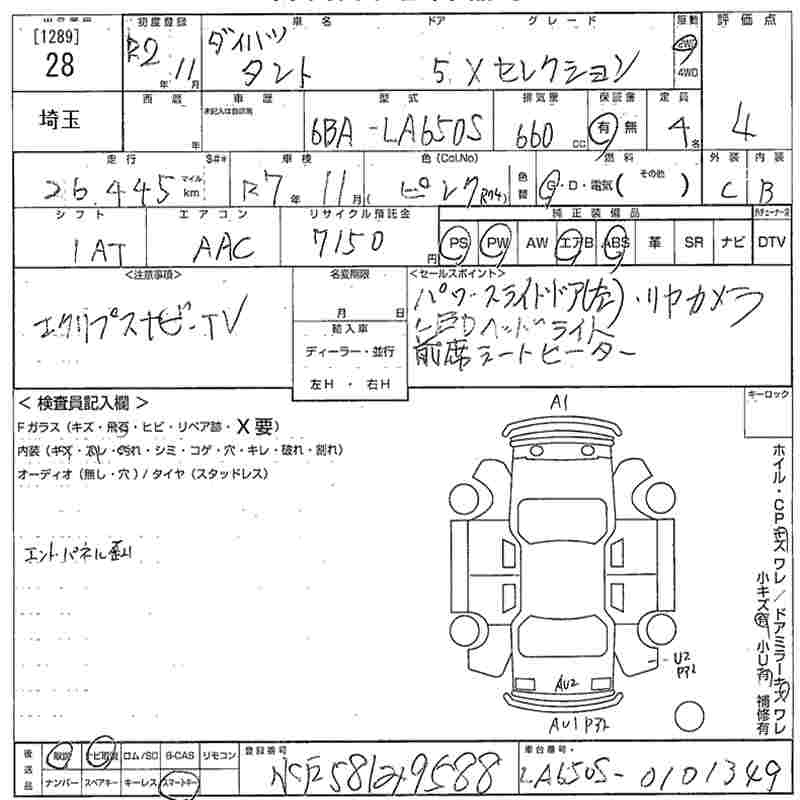 [1289]
28
埼玉
初度登録
R2年 11月
車名
ダイハツ
タント
ドア
5
グレード
Xセレクション
駆動
2WD
4WD
評価点
4
西暦
年
車歴
未記入は自家用
型式
6BA-LA650S
排気量
660cc
保証書
有・無
定員
4名
走行
26,445
マイル
km
車検
R7年 11月
色(Col.No)
ピンク(R74)
色替
燃料
G・D・電気( その他 )
外装
C
内装
B
シフト
IAT
エアコン
AAC
リサイクル預託金
7150円
純正装備品
PS PW AW エアB ABS 革 SR ナビ DTV
<注意事項>
エクリプスナビ-TV
名変期限
月 日
輸入車
ディーラー・並行
左H・右H
<セールスポイント>
パワースライドドア(左)・リヤカメラ
LEDヘッドライト
前席シートヒーター
キーロック
<検査員記入欄>
Fガラス(キズ・飛石・ヒビ・リペア跡・X要)
内装(キズ・スレ・汚れ・シミ・コゲ・穴・キレ・破れ・割れ)
オーディオ(無し・穴)/タイヤ(スタッドレス)
エンドパネル歪み
A1
U2
P92
AU2
AU1 P32
ホイル・CPキズワレ/ドアミラーキズワレ
小キズ有 小U有 補修有
後送品
取説 ナビ取説 ロム/SD B-CAS リモコン
ナンバー スペアキー キーレス スマートキー
登録番号
車台番号
LA650S-0101349